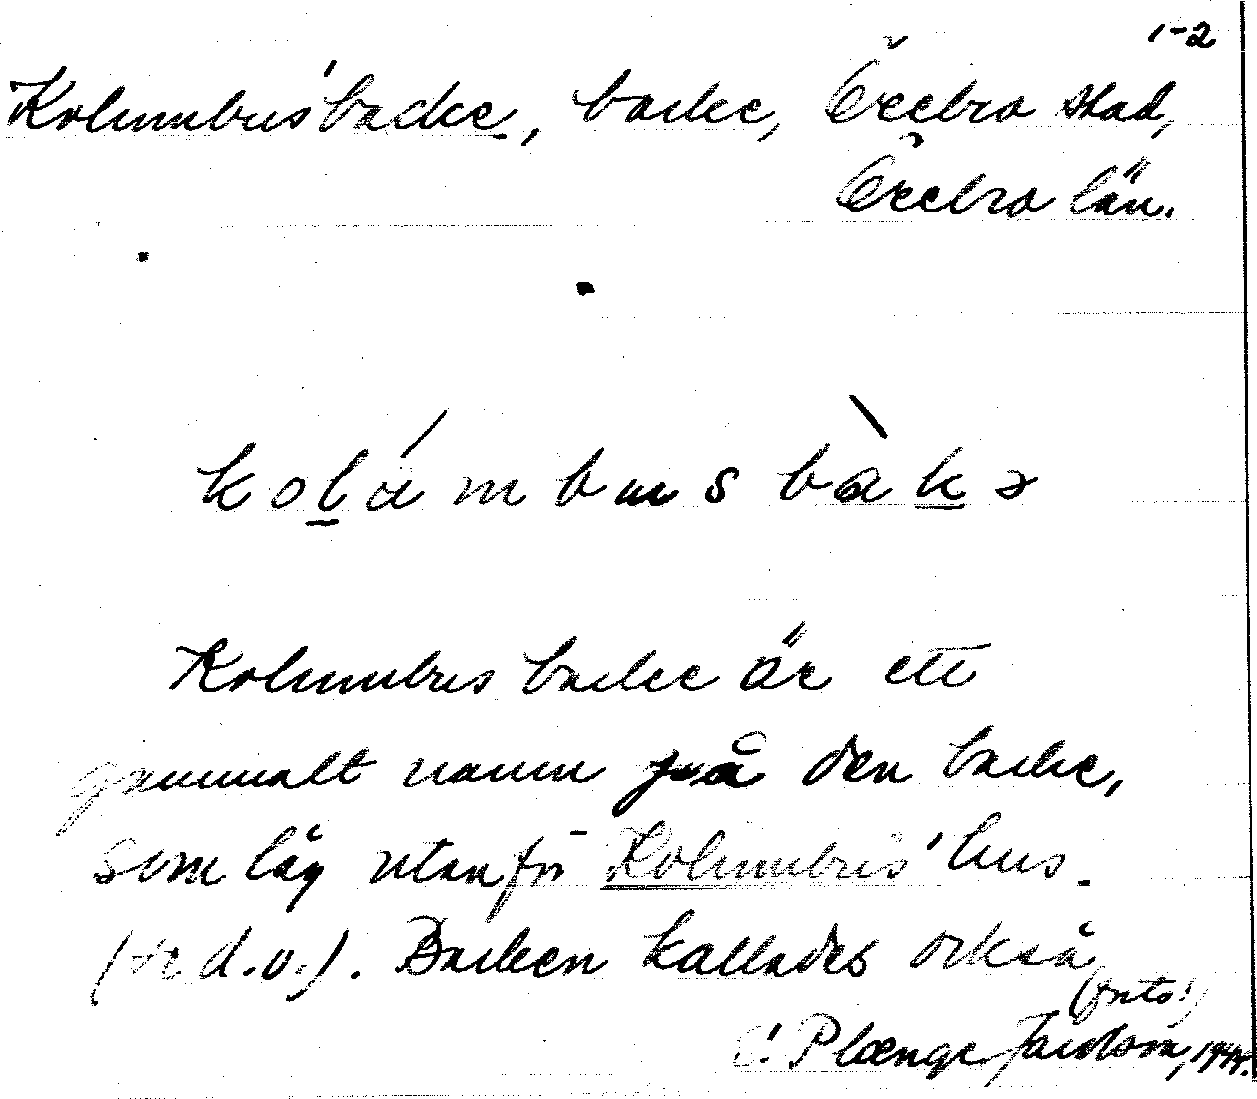 1-2
Kolumbus' backe, backe, Örebro stad,
Örebro län.
kolámbusbàkə
Kolumbus backe är ett
gammalt namn på den backe,
som låg utanför Kolumbus' hus.
(se d.o.). Backen kallades också
(forts!)
C. Plænge Jacobson, 1944.